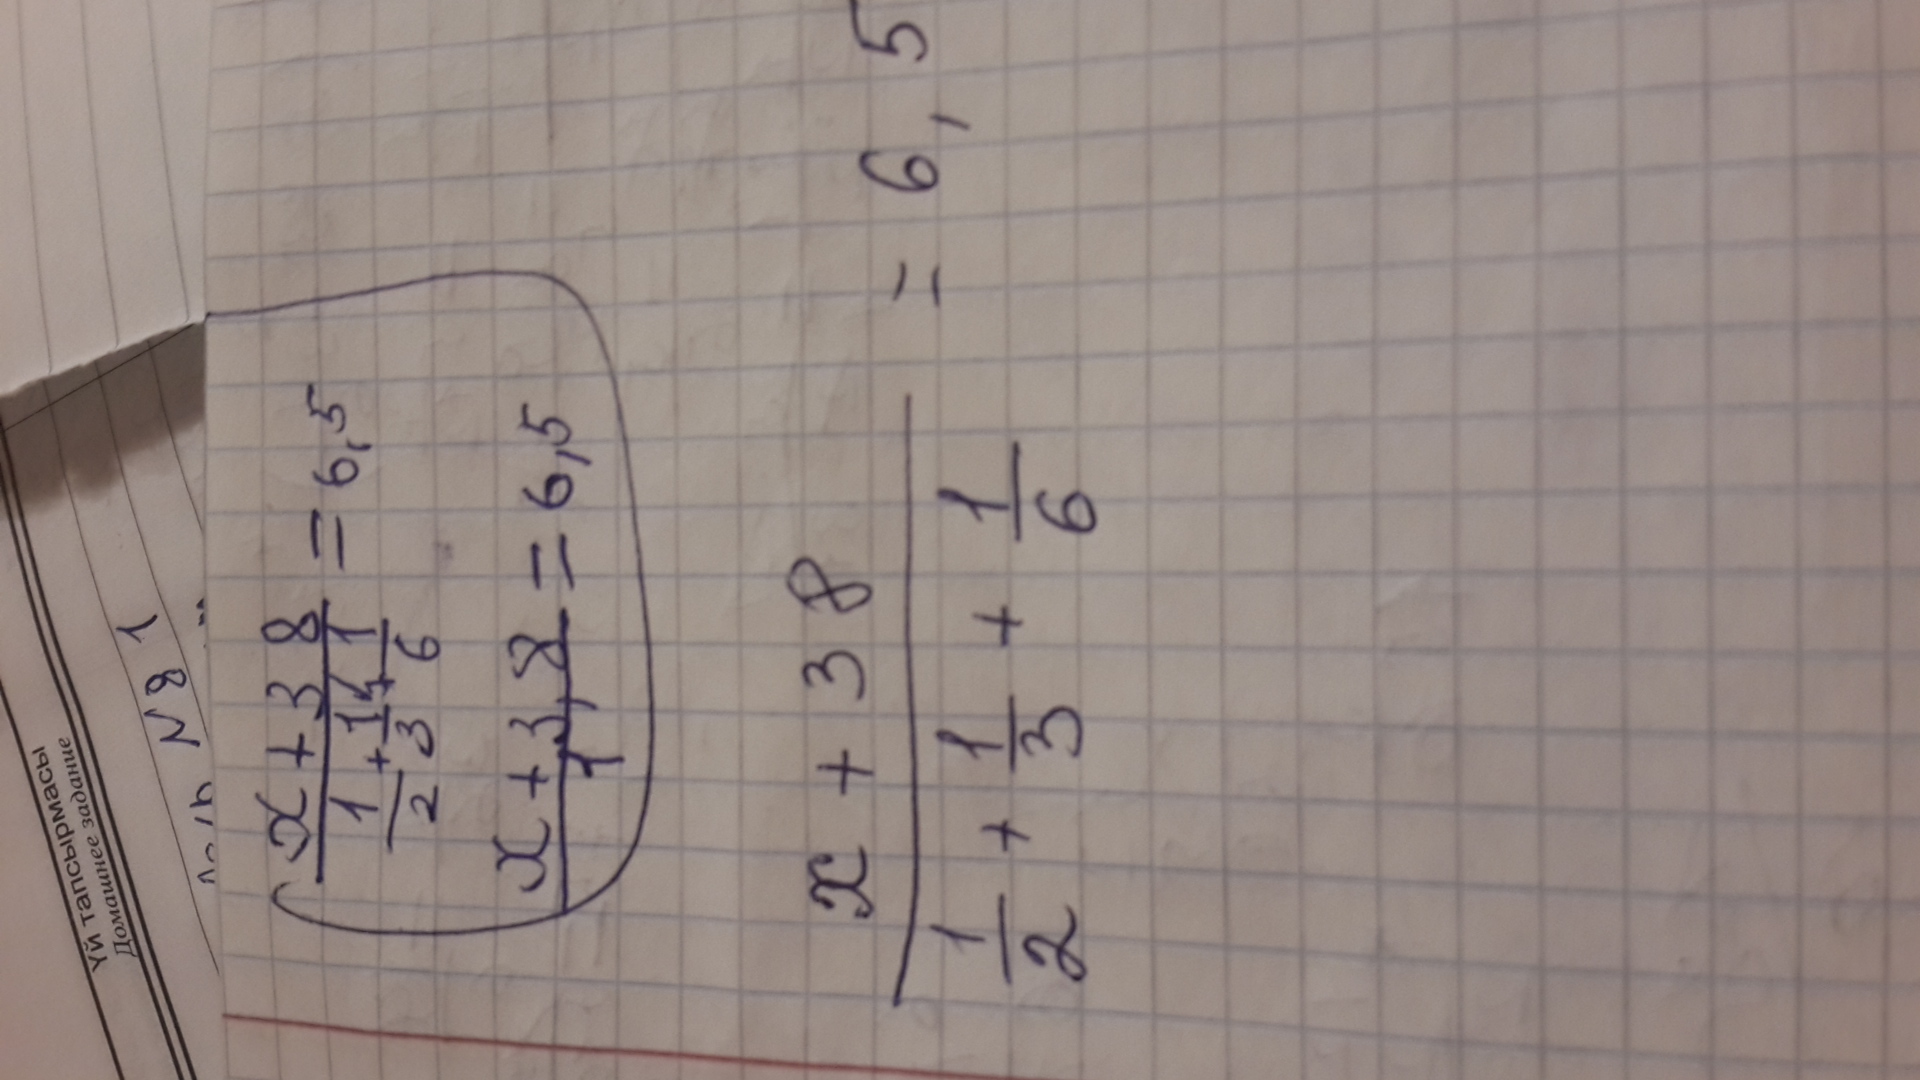 Үй тапсырмасы
Домашнее задание
N 8 1
x + 3 8 / (1/2 + 1/3 + 1/6) = 6,5
x + 3,8 / 1 = 6,5
x + 3 8 / (1/2 + 1/3 + 1/6) = 6,5